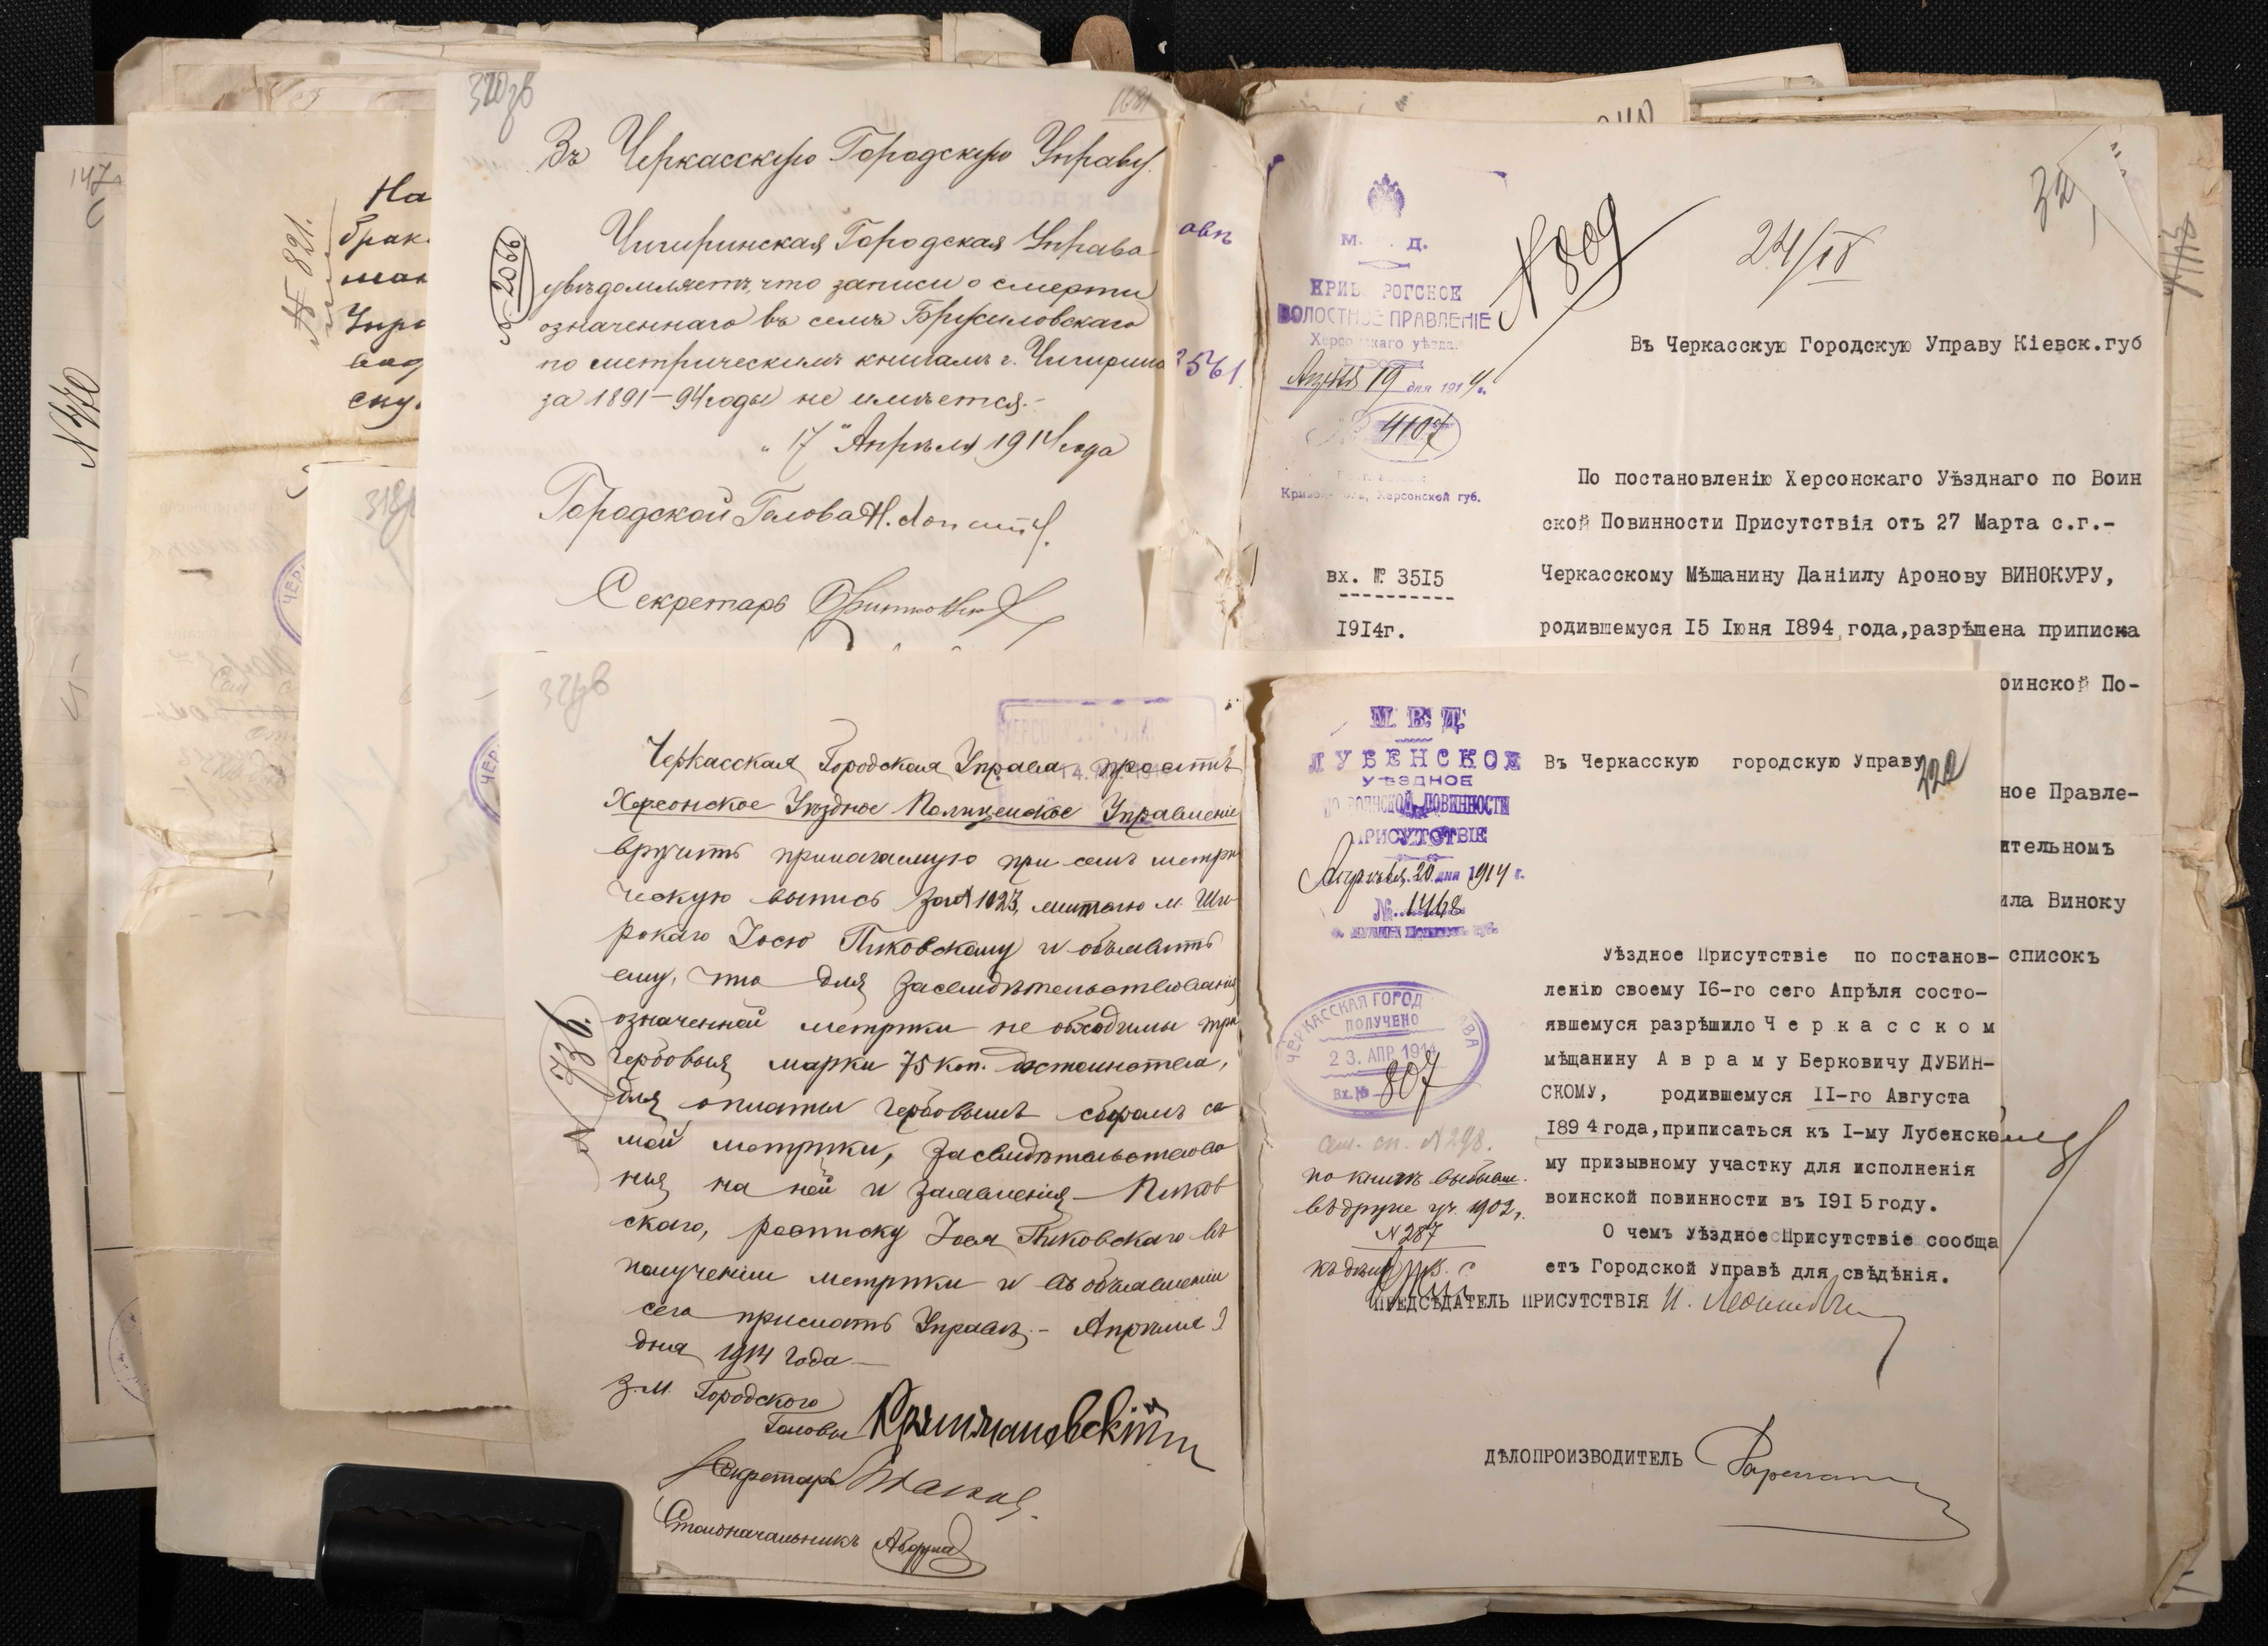 147
N 470
№ 821.
На
брак
Упр
ску
318
320 зв
1681
Въ Черкасскую Городскую Управу.
Чигиринская Городская Управа
№ 2066
увѣдомляетъ, что записи о смерти
означеннаго въ семъ Брусиловскаго
по метрическимъ книгамъ г. Чигирина
за 1891–94 годы не имѣется.–
"17" Апрѣля 1914 года
Городской Голова Н.
Секретарь
авѣ
3561.
32
24/IV
N 809
М. Д.
КРИВ РОГСКОЕ
ВОЛОСТНОЕ ПРАВЛЕНІЕ
Херсонскаго уѣзда.
Апрѣля 19 дня 1914 г.
№ 4107
Херсонской губ.
Въ Черкасскую Городскую Управу Кіевск.губ
По постановленію Херсонскаго Уѣзднаго по Воин
ской Повинности Присутствія отъ 27 Марта с.г.-
вх. № 3515
1914г.
Черкасскому Мѣшанину Даніилу Аронову ВИНОКУРУ,
родившемуся 15 Іюня 1894 года,разрѣшена приписка
оинской По-
ное Правле-
ительномъ
ила Виноку
списокъ
321 зв
Черкасская Городская Управа проситъ
Херсонское Уѣздное Полицейское Управленіе
вручить прилагаемую при семъ метри
ческую выпись за № 1023, жителю м. Ши
рокаго Іосю Пиковскому и объявить
ему, что для засвидѣтельствованія
означенной метрики необходимы три
гербовыя марки 75 коп. достоинства,
№ 736.
для оплаты гербовымъ сборомъ са
мой метрики, засвидѣтельствова
нія на ней и заявленія Пиков
скаго, росписку Іося Пиковскаго въ
полученіи метрики и въ объявленіи
сего прислать Управѣ.– Апрѣля
дня 1914 года.–
З.м. Городского
Головы
Секретарь
Столоначальникъ
М. В. Д.
ЛУБЕНСКОЕ
УѢЗДНОЕ
ПО ВОИНСКОЙ ПОВИННОСТИ
ПРИСУТСТВІЕ
Апрѣля 20 дня 1914 г.
№ 1468
Въ Черкасскую городскую Управу
322
ЧЕРКАССКАЯ ГОРОД АВА
ПОЛУЧЕНО
23. АПР 1914
Вх. № 807
сем. сп. № 298.
по книгѣ выбывш.
въ другие уч. 1902 г.
N 287
къ дѣлу
Уѣздное Присутствіе по постанов-
ленію своему 16-го сего Апрѣля состо-
явшемуся разрѣшило Черкасском
мѣщанину Авраму Берковичу ДУБИН-
СКОМУ, родившемуся II-го Августа
1894 года,приписаться къ I-му Лубенско
му призывному участку для исполненія
воинской повинности въ 1915 году.
О чемъ Уѣздное Присутствіе сообща
етъ Городской Управѣ для свѣдѣнія.
ПРЕДСѢДАТЕЛЬ ПРИСУТСТВІЯ
ДѢЛОПРОИЗВОДИТЕЛЬ